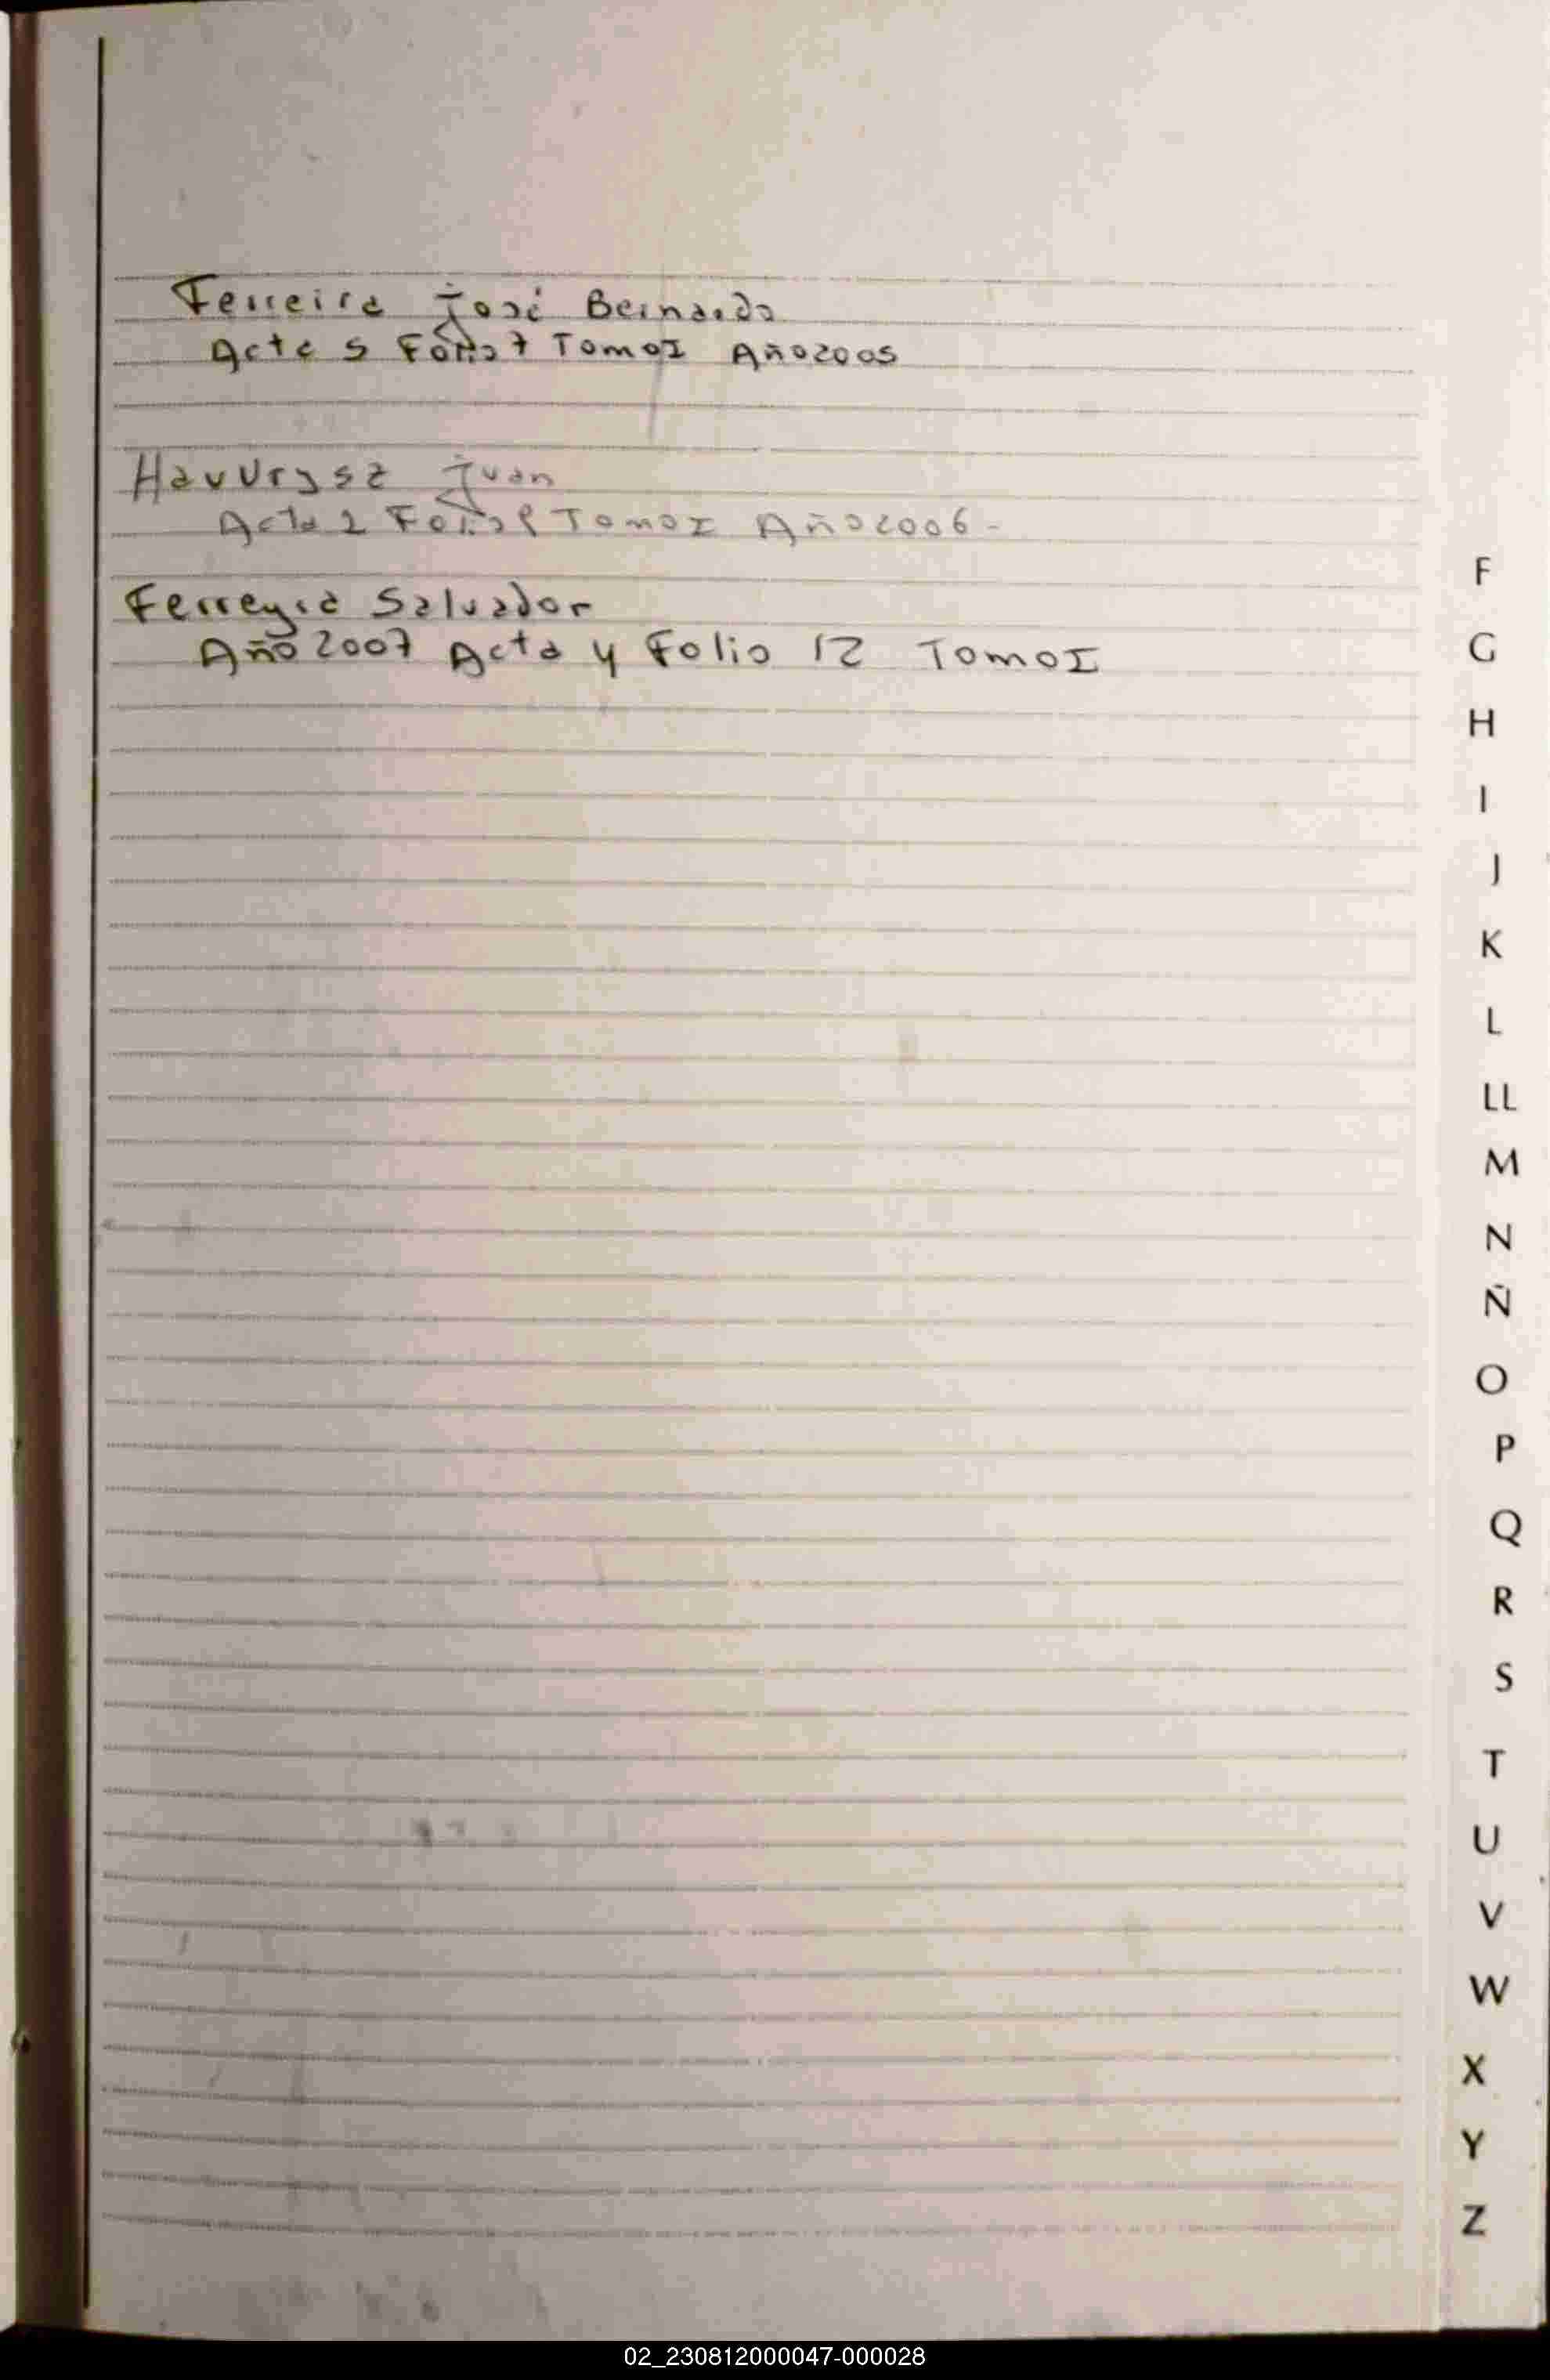 Ferreira José Bernardo
Acta 5 Folio 7 Tomo I Año 2005
Havvrysz Juan
Acta 2 Folio Tomo I Año 2006-
Ferreyra Salvador
Año 2007 Acta y Folio 12 Tomo I
F
G
H
I
J
K
L
LL
M
N
Ñ
O
P
Q
R
S
T
U
V
W
X
Y
Z
02_230812000047-000028